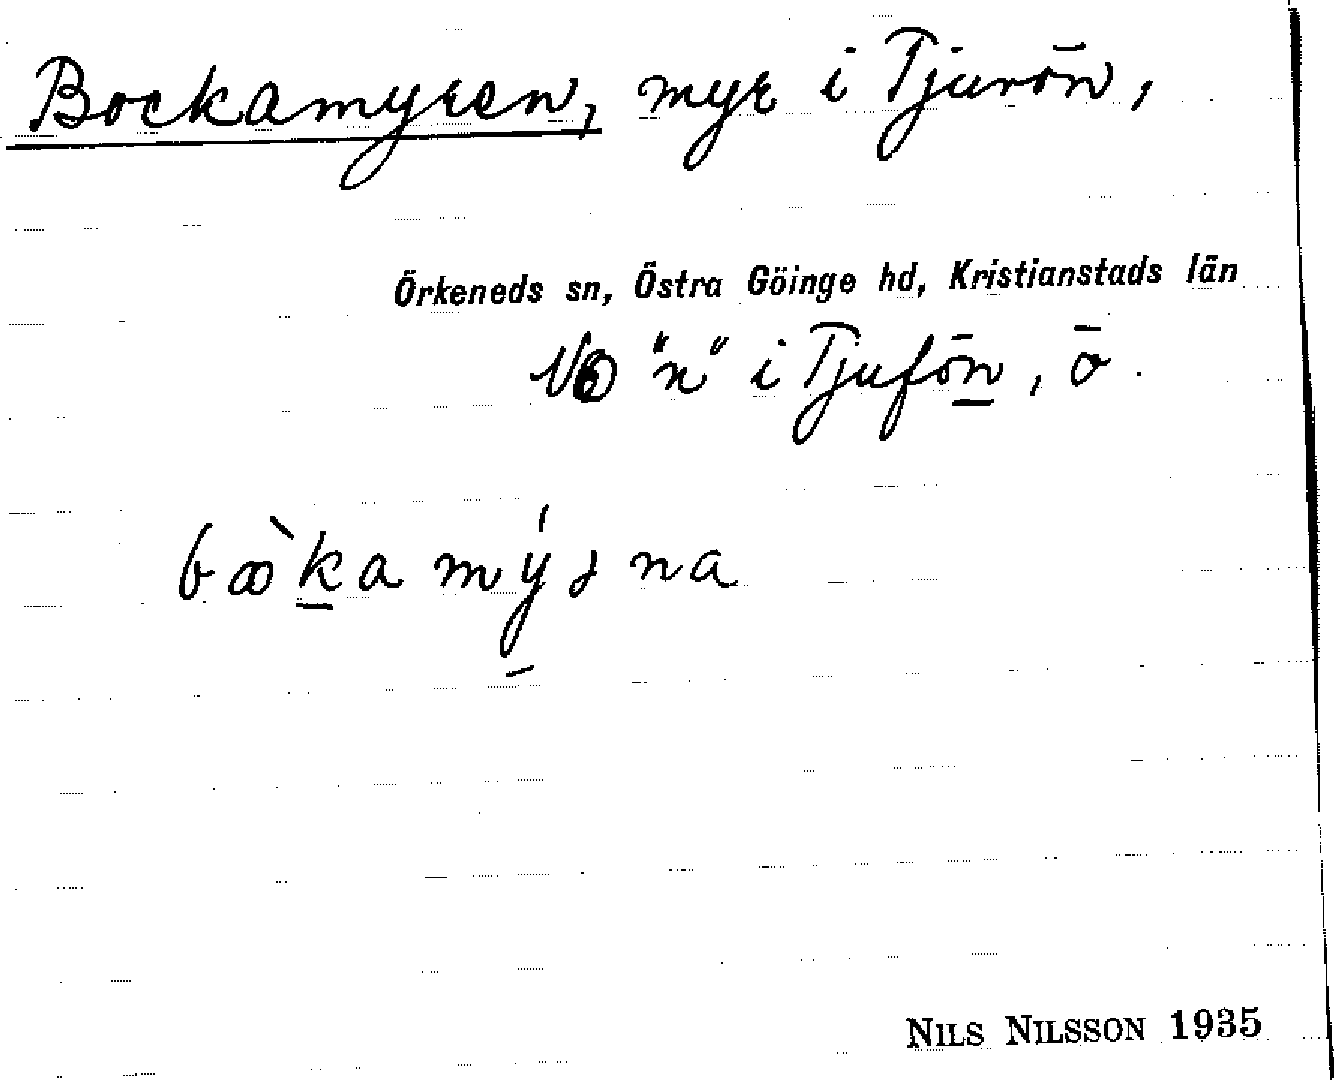 Bockamyren, myr i Tjurön,
Örkeneds sn, Östra Göinge hd, Kristianstads län
NO "n" i Tjufön, ō.
NILS NILSSON 1935